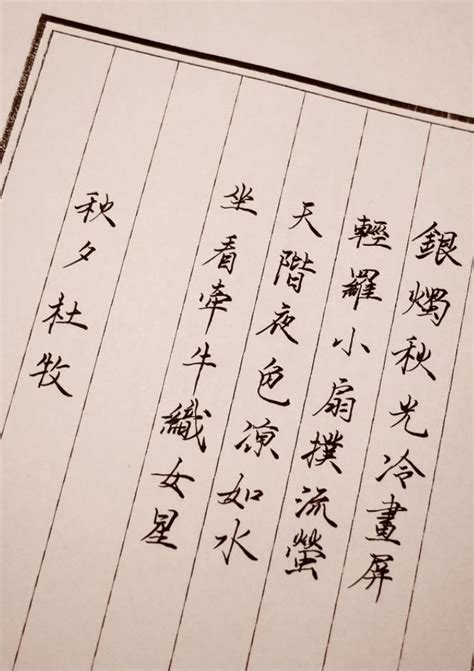 銀燭秋光冷畫屏
輕羅小扇撲流螢
天階夜色涼如水
坐看牽牛織女星
秋夕杜牧